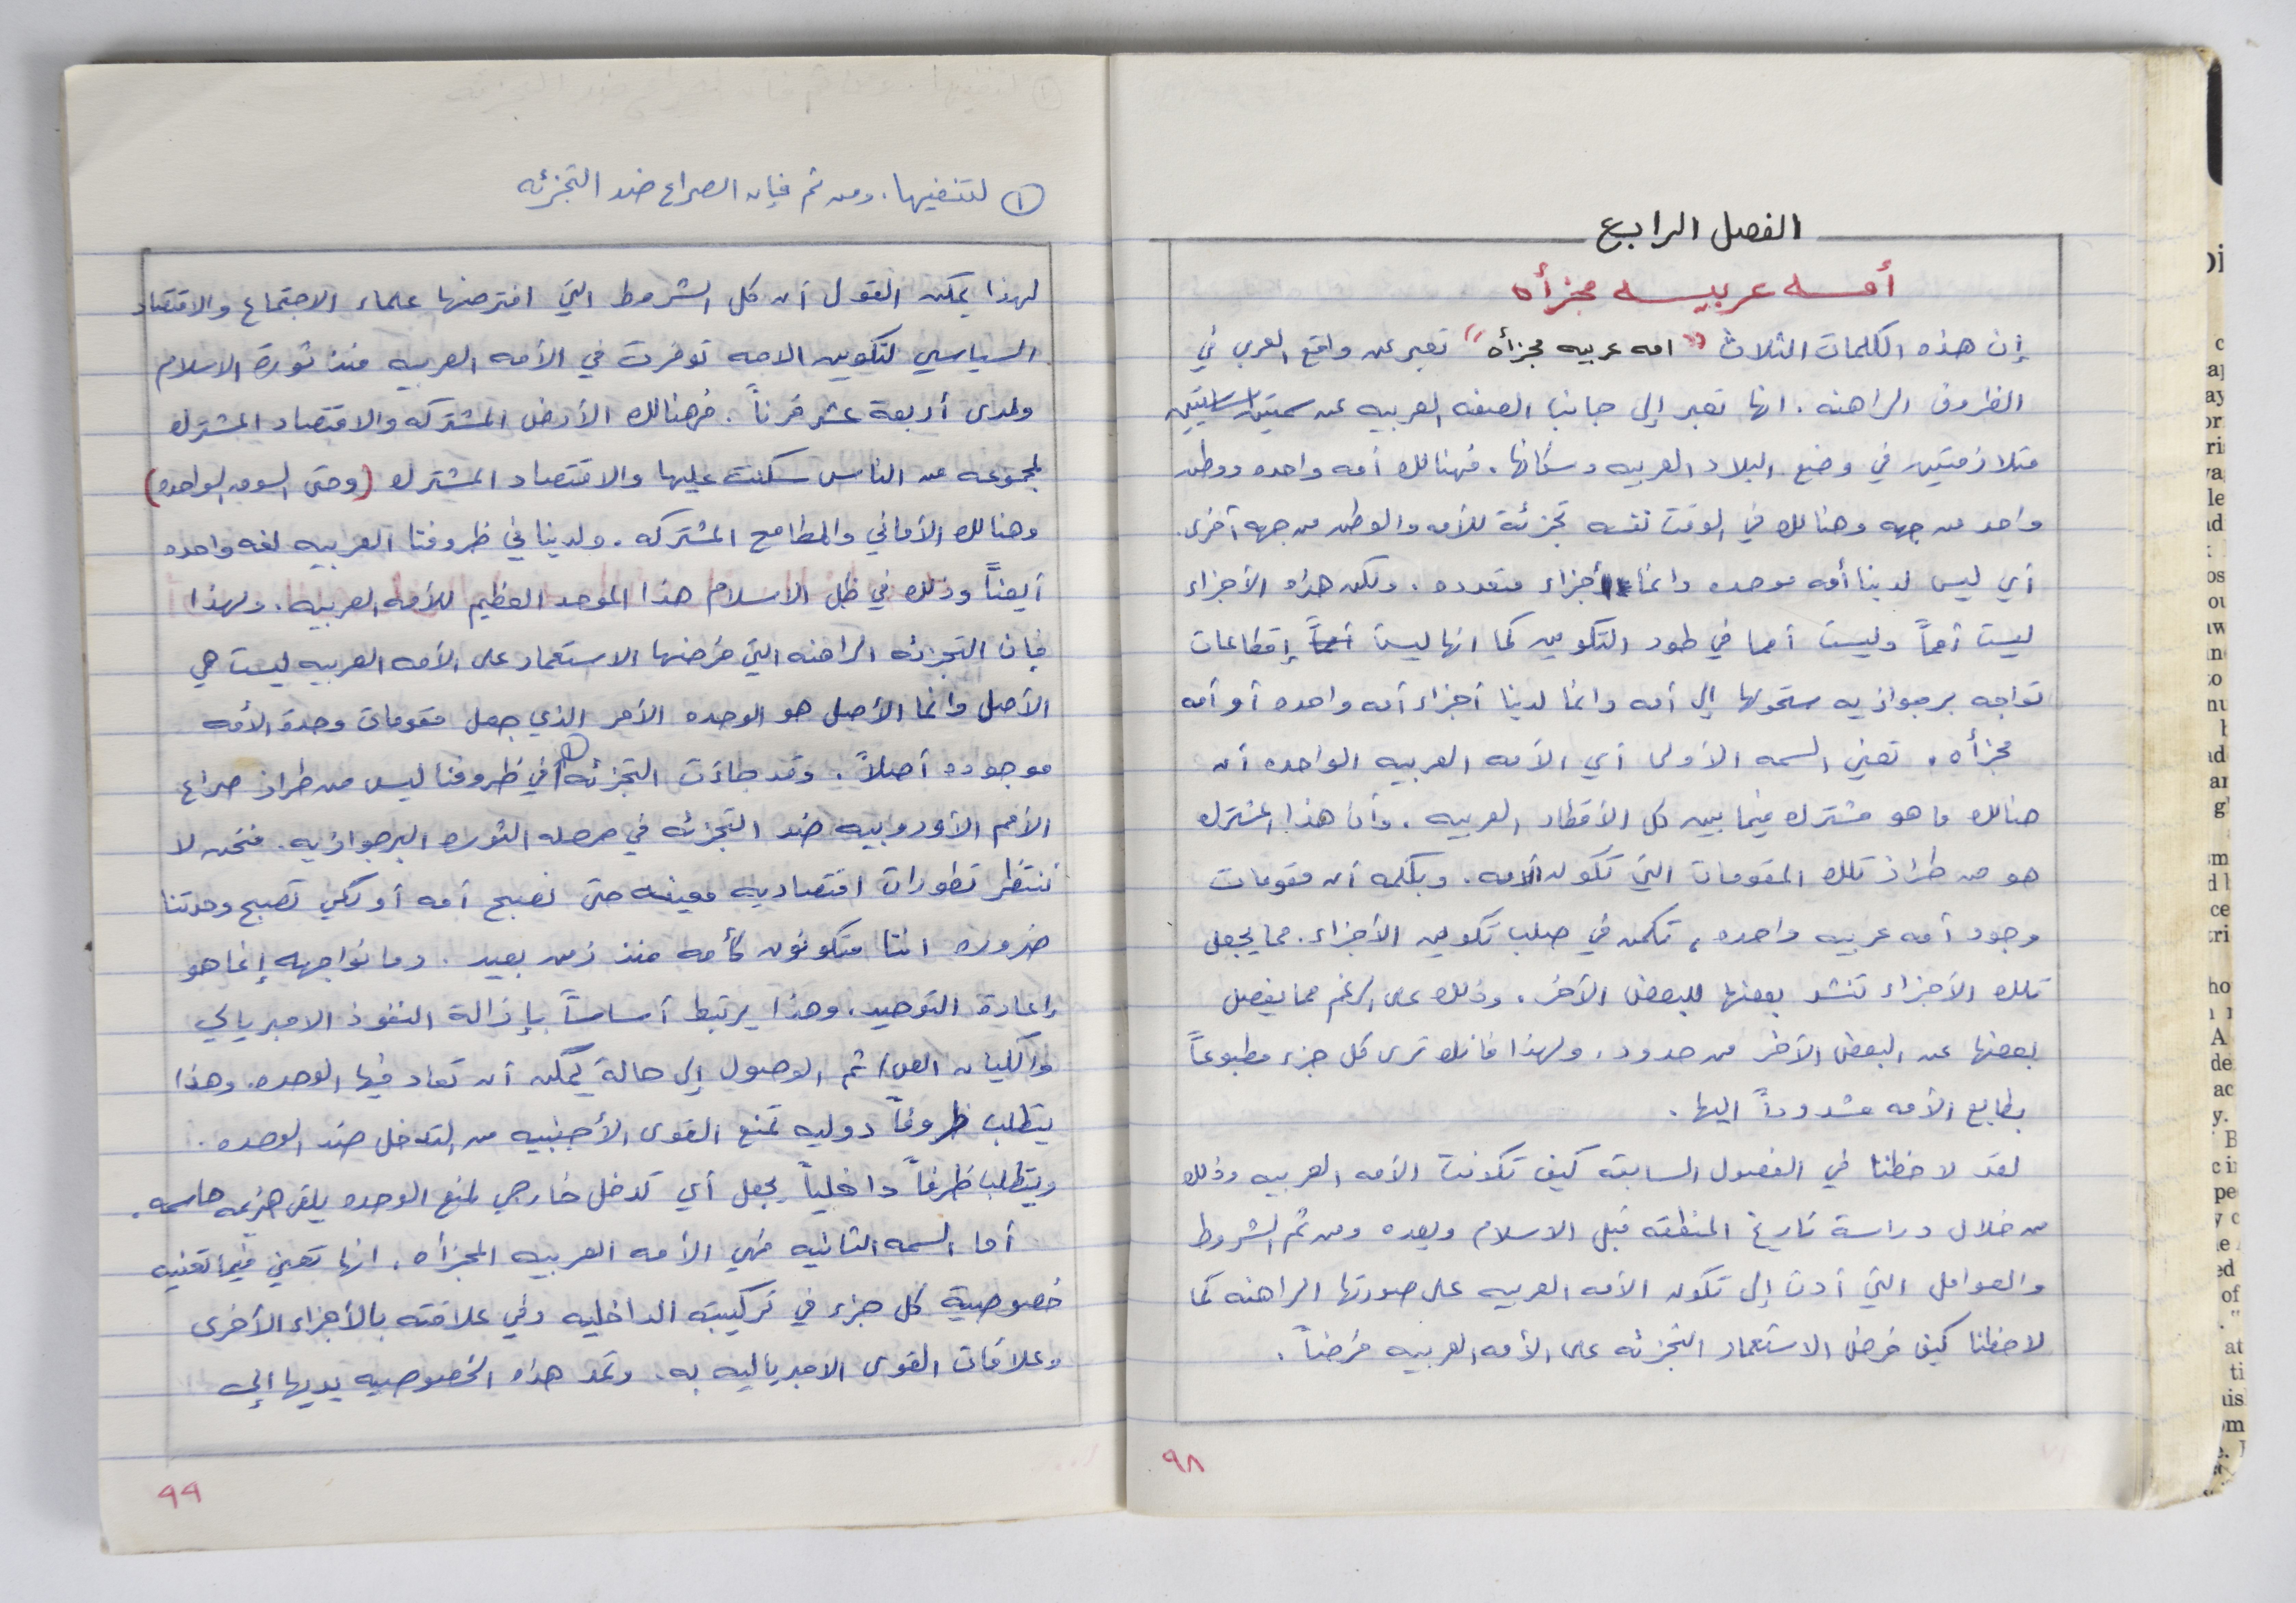 الفصل الرابع
أمه عربيه مجزأه
إن هذه الكلمات الثلاث "امه عربيه مجزأه" تعبر عن واقع العرب في
الظروف الراهنه. انها تعبر إلى جانب الصفه العربيه عن سمتين اساسيتين
متلازمتين في وضع البلاد العربيه وسكانها. فهنالك أمه واحده ووطن
واحد من جهه وهنالك في الوقت نفسه تجزئة للأمه والوطن من جهه أخرى.
أي ليس لدينا أمه موحده وانما أجزاء متعدده. ولكن هذه الأجزاء
ليست أمماً وليست أمما في طور التكوين كما انها ليست إقطاعات
تواجه برجوازيه ستحولها إلى أمه وانما لدينا أجزاء أمه واحده أو أمه
مجزأه. تعني السمه الأولى أي الأمه العربيه الواحده أن
هنالك ما هو مشترك فيما بين كل الأقطار العربيه. وأن هذا المشترك
هو من طراز تلك المقومات التي تكون الأمه. وبكلمه أن مقومات
وجود أمه عربيه واحده، تكمن في صلب تكوين الأجزاء. مما يجعل
تلك الأجزاء تنشد بعضها للبعض الآخر. وذلك على الرغم مما يفصل
بعضها عن البعض الآخر من حدود. ولهذا فانك ترى كل جزء مطبوعاً
بطابع الأمه مشدوداً اليها.
لقد لاحظنا في الفصول السابقه كيف تكونت الأمه العربيه وذلك
من خلال دراسة تاريخ المنطقه قبل الاسلام وبعده ومن ثم الشروط
والعوامل التي أدت إلى تكون الأمه العربيه على صورتها الراهنه كما
لاحظنا كيف فرض الاستعمار التجزئه على الأمه العربيه فرضاً.
٩٨
① لتنفيها. ومن ثم فإن الصراع ضد التجزئه
لهذا يمكن القول أن كل الشروط التي افترضها علماء الاجتماع والاقتصاد
السياسي لتكوين الامه توفرت في الأمه العربيه منذ ثورة الاسلام
ولمدى أربعة عشر قرناً. فهنالك الأرض المشتركه والاقتصاد المشترك
لمجموعه من الناس سكنت عليها والاقتصاد المشترك (وحتى السوق الواحده)
وهنالك الأماني والمطامح المشتركه. ولدينا في ظروفنا العربيه لغه واحده
أيضاً وذلك في ظل الاسلام هذا الموحد العظيم للأمه العربيه. ولهذا
فإن التجزئه الراهنه التي فرضها الاستعمار على الأمه العربيه ليست هي
الأصل وانما الأصل هو الوحده الأمر الذي جعل مقومات وحدة الأمه
موجوده أصلاً. وقد جاءت التجزئه ① في ظروفنا ليس من طراز صراع
الأمم الأوروبيه ضد التجزئه في مرحله الثوره البرجوازيه. فنحن لا
ننتظر تطورات اقتصاديه معينه حتى نصبح أمه أو لكي تصبح وحدتنا
ضروره اننا متكونون كأمه منذ زمن بعيد. وما نواجهه إنما هو
إعادة التوحيد. وهذا يرتبط أساساً بإزالة النفوذ الامبريالي
والكيان الص/ ثم الوصول إلى حالة يمكن أن تعاد فيها الوحده. وهذا
يتطلب ظروفاً دوليه تمنع القوى الأجنبيه من التدخل ضد الوحده.
ويتطلب ظرفاً داخلياً يجعل أي تدخل خارجي لمنع الوحده يلقى هزيمه حاسمه.
أما السمه الثانيه فهي الأمه العربيه المجزأه. انها تعني فيما تعنيه
خصوصية كل جزء في تركيبته الداخليه وفي علاقته بالأجزاء الأخرى
وعلاقات القوى الامبرياليه به. وتمد هذه الخصوصيه يديها إلى
٩٩